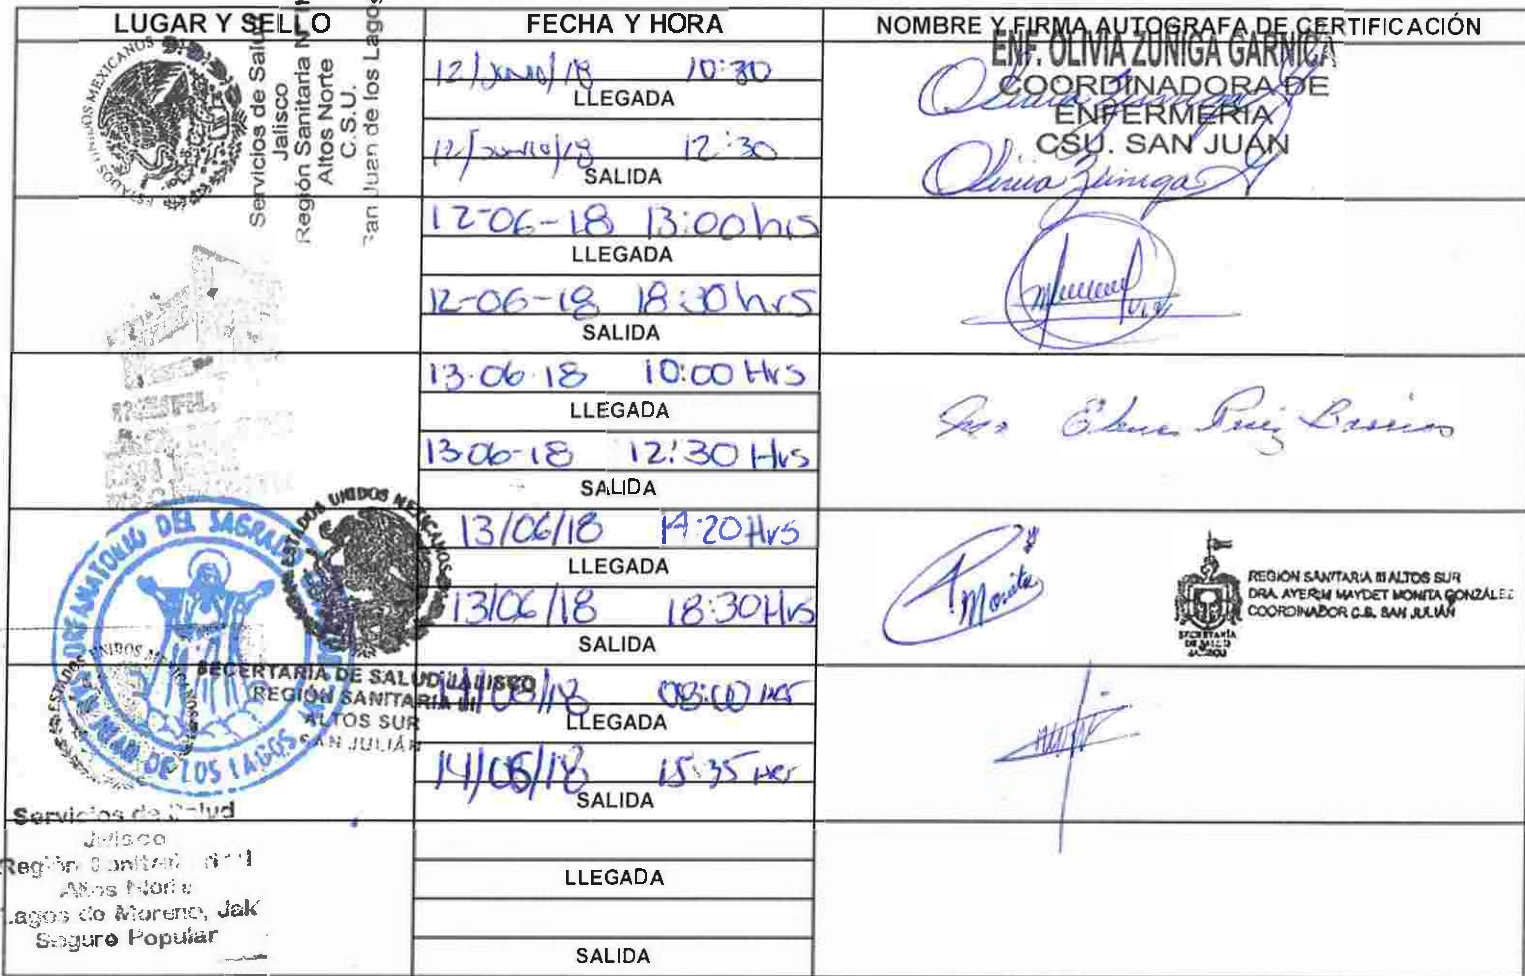 LUGAR Y SELLO
FECHA Y HORA
NOMBRE Y FIRMA AUTOGRAFA DE CERTIFICACIÓN
ESTADOS UNIDOS MEXICANOS
Servicios de Salud
Jalisco
Región Sanitaria N
Altos Norte
C.S.U.
San Juan de los Lagos
12/junio/18 10:30
LLEGADA
12/junio/18 12:30
SALIDA
ENF. OLIVIA ZUÑIGA GARNICA
COORDINADORA DE
ENFERMERIA
CSU. SAN JUAN
Olivia Zuniga G
Olivia Zuniga G
12-06-18 13:00 hrs
LLEGADA
12-06-18 18:30 hrs
SALIDA
13-06-18 10:00 Hrs
LLEGADA
13-06-18 12:30 Hrs
SALIDA
Elena Barrios
ORFANATORIO DEL SAGRADO
SAN JUAN DE LOS LAGOS
ESTADOS UNIDOS MEXICANOS
13/06/18 14:20 Hrs
LLEGADA
13/06/18 18:30 Hrs
SALIDA
Monita
REGION SANITARIA III ALTOS SUR
DRA. AYERIM MAYDET MONITA GONZÁLEZ
COORDINADOR C.S. SAN JULIÁN
SECRETARÍA
DE SALUD
JALISCO
SECERTARÍA DE SALUD JALISCO
REGIÓN SANITARIA III
ALTOS SUR
SAN JULIÁN
ESTADOS UNIDOS MEXICANOS
14/06/18 08:00
LLEGADA
14/06/18 15:35
SALIDA
Servicios de Salud
Jalisco
Región Sanitaria
Altos Norte
Lagos de Moreno, Jal
Seguro Popular
LLEGADA
SALIDA